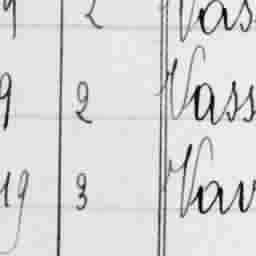 2 Vas
9 2 Vass
19 3 Vav